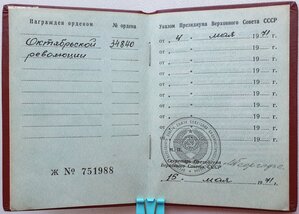 Награжден орденом № ордена
Октябрьской 34840
революции
Ж № 751988
Указом Президиума Верховного Совета СССР
от 4 мая 1971 г.
от 19 г.
от 19 г.
от 19 г.
от 19 г.
от 19 г.
от 19 г.
М. П.
Секретарь Президиума
Верховного Совета СССР
15 мая 1971 г.